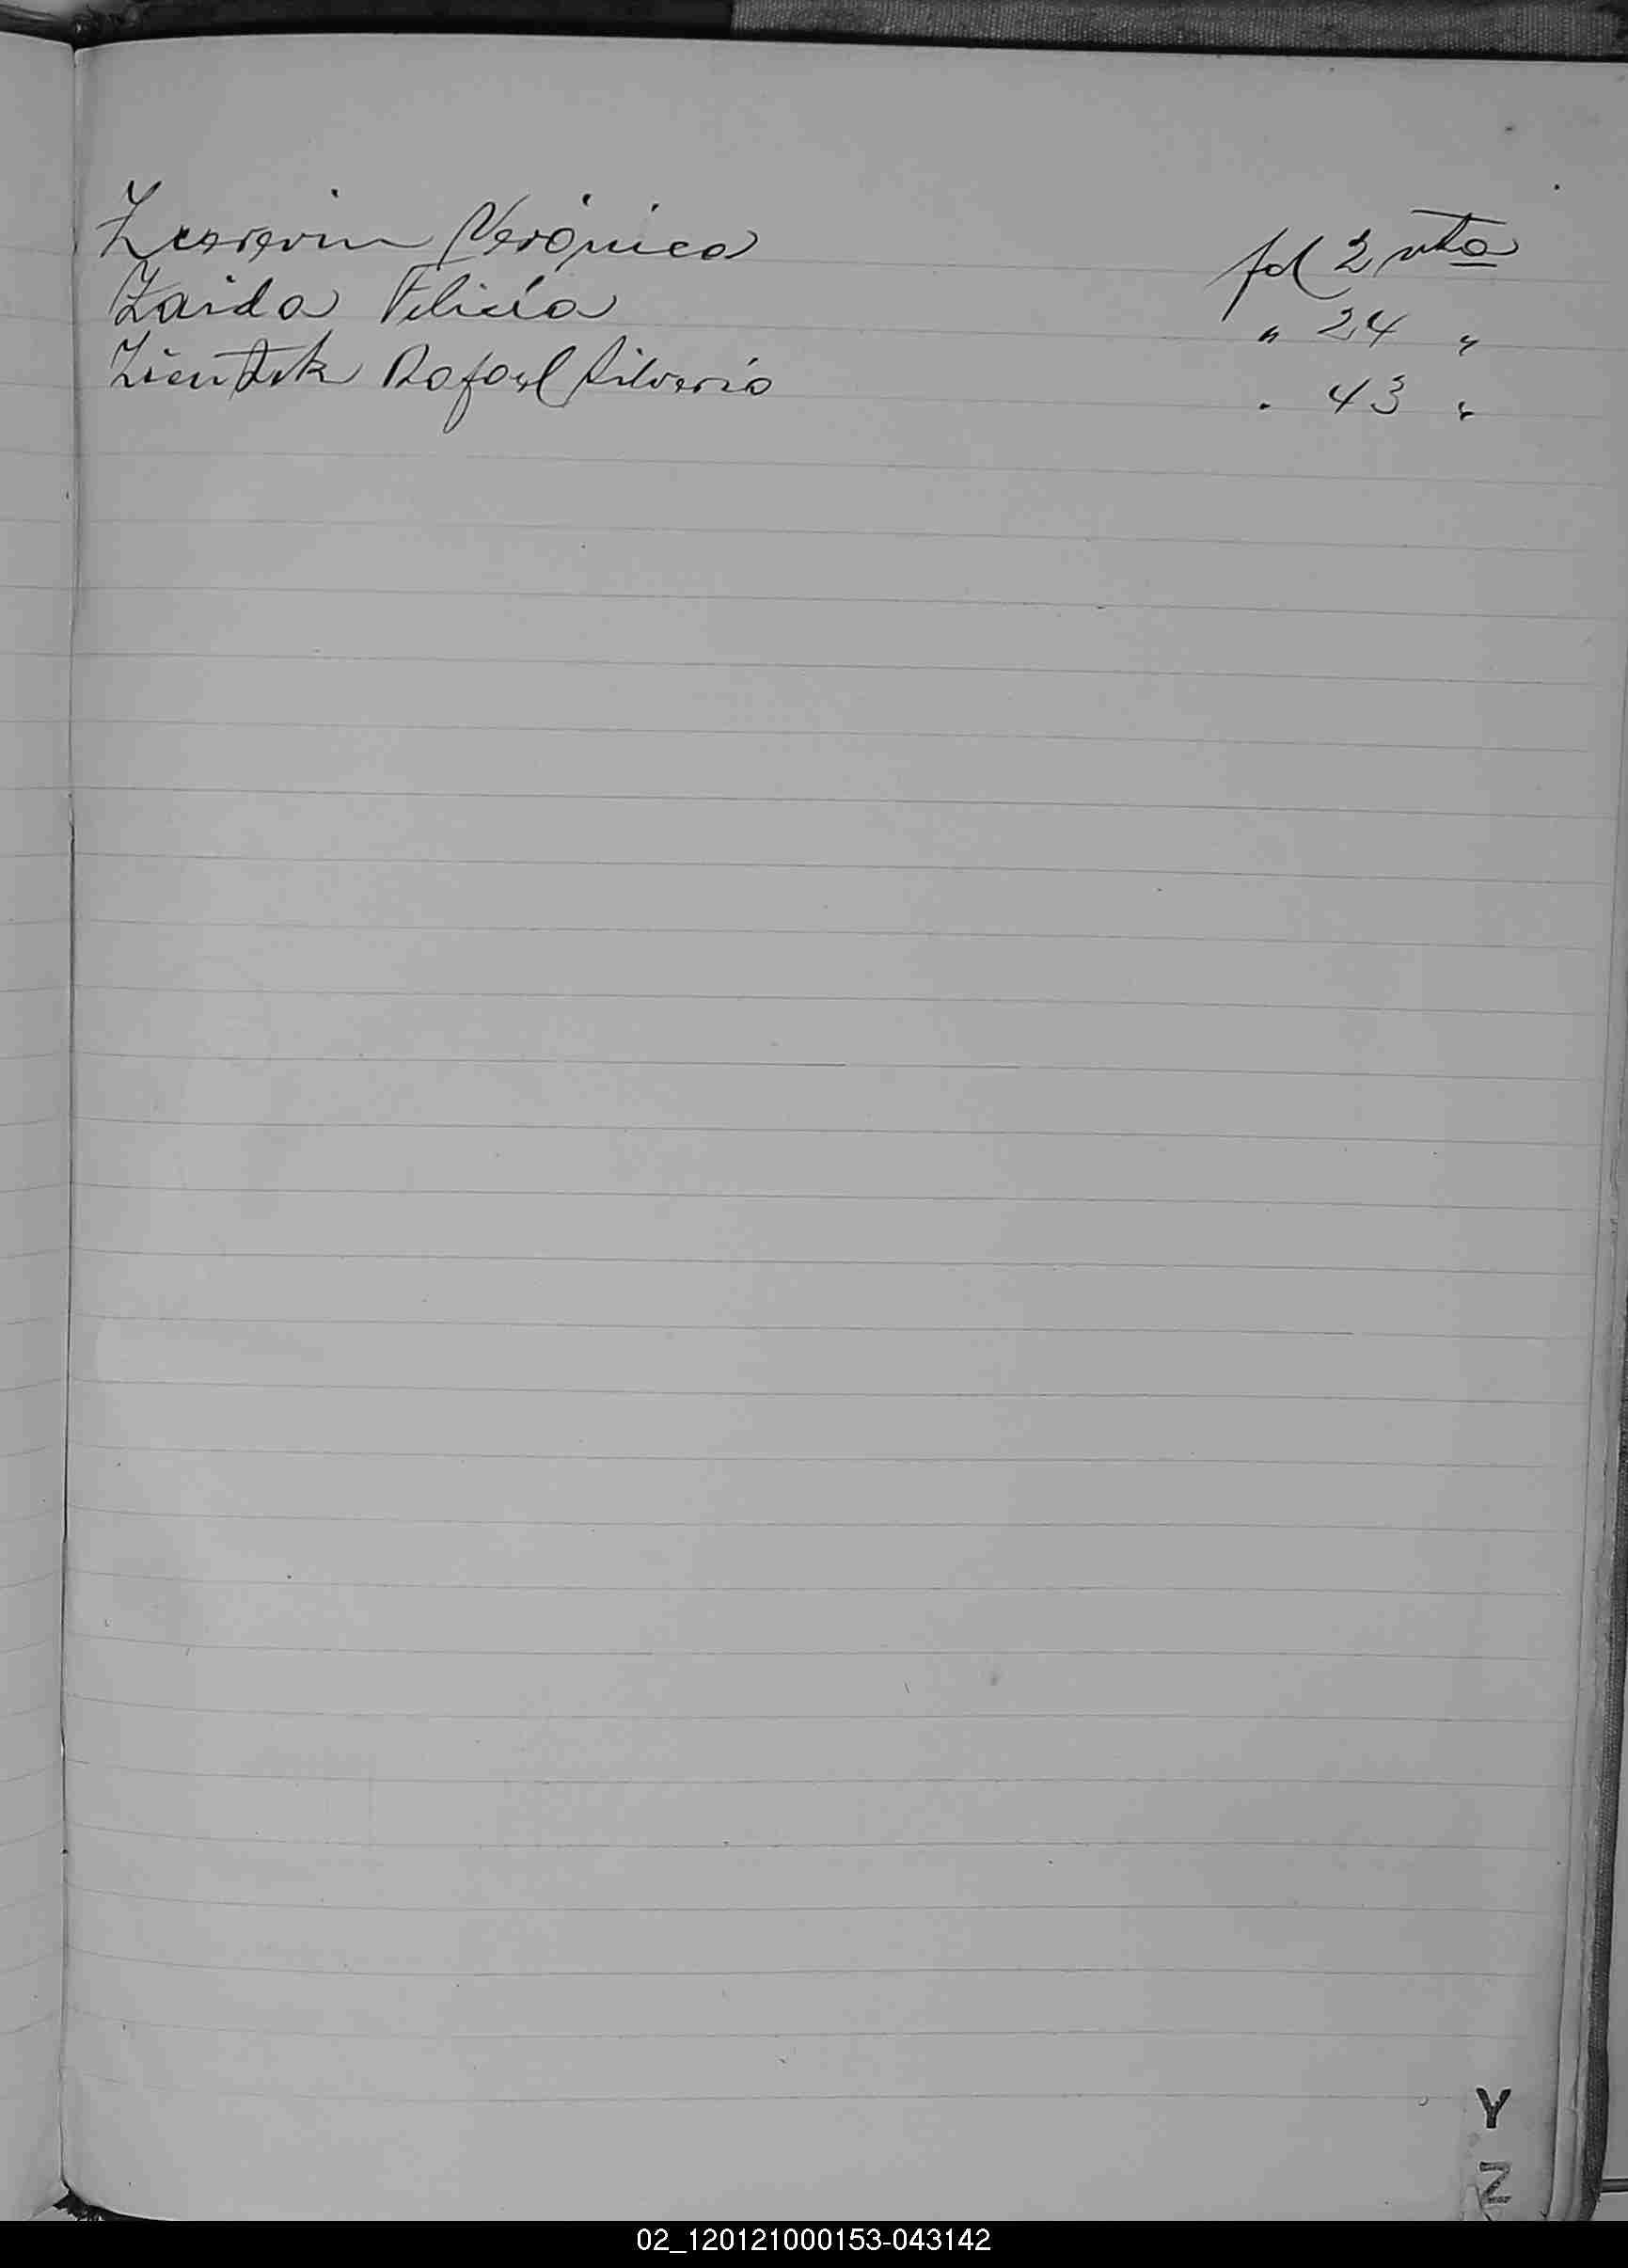 Verónica fol 2 vta
Zaida Felicia " 24 "
Zientek Rafael Silverio " 43 "
Y
Z
02_120121000153-043142